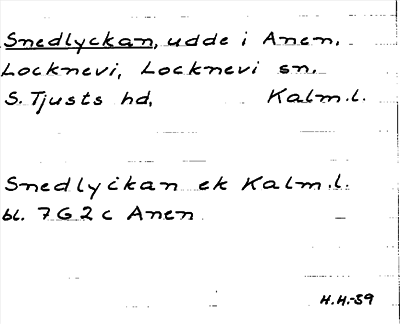 Snedlyckan, udde i Anen,
Locknevi, Locknevi sn.
S. Tjusts hd, Kalm.l.
Snedlyckan ek Kalm.l.
bl. 7G2c Anen
H.H.-59